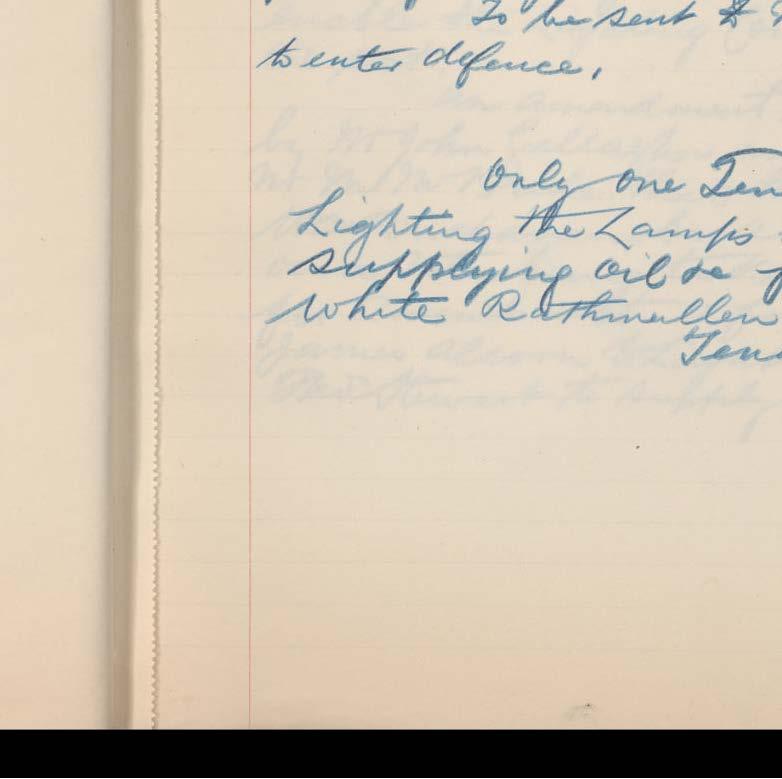 To be sent to
to enter defence.
Only one Ten
Lighting the Lamps
Supplying oil &c f
White Rathmullen
Tend